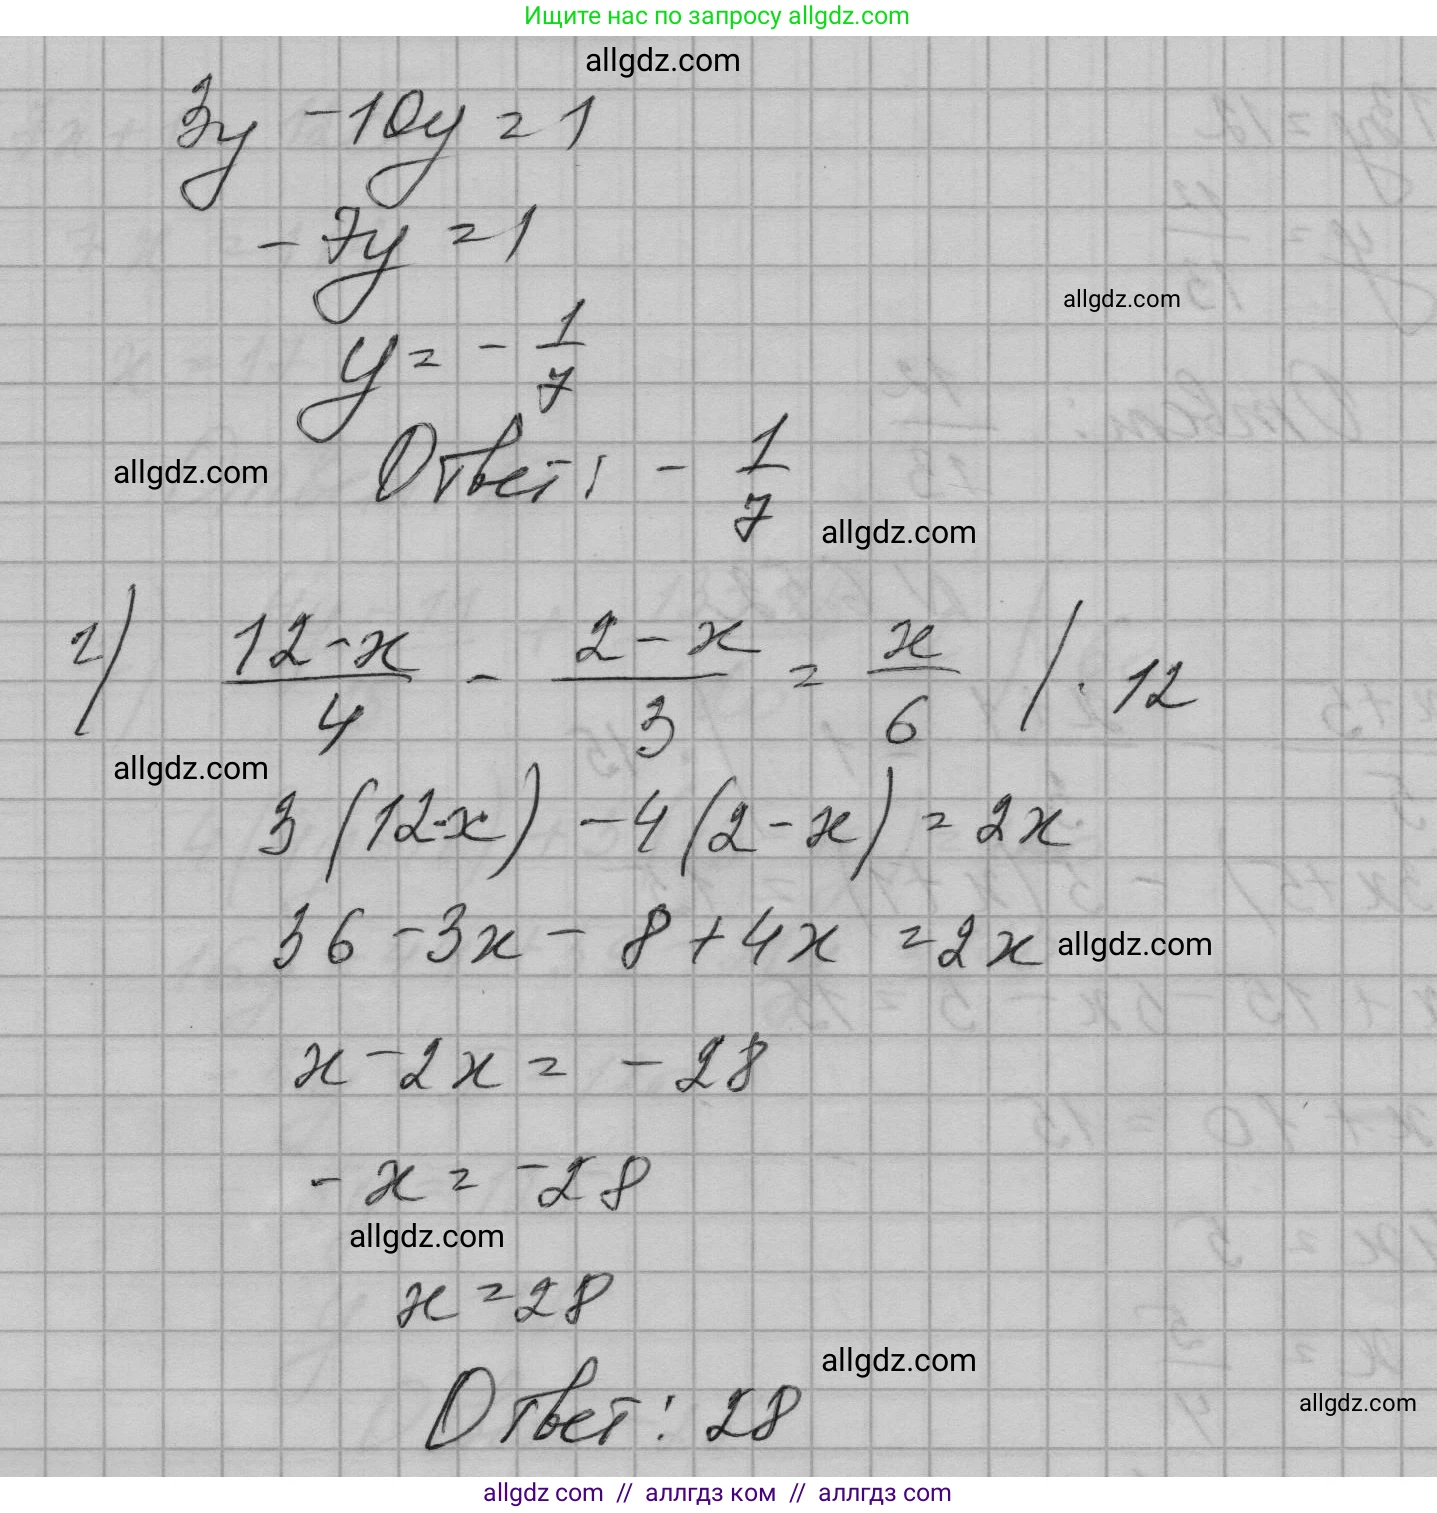 Ищите нас по запросу allgdz.com
allgdz.com
3y - 10y = 1
- 7y = 1
allgdz.com
y = - 1/7
allgdz.com
Ответ: - 1/7
allgdz.com
г) (12-x)/4 - (2-x)/3 = x/6 / · 12
allgdz.com
3(12-x) - 4(2-x) = 2x
36 - 3x - 8 + 4x = 2x
allgdz.com
x - 2x = - 28
- x = - 28
allgdz.com
x = 28
allgdz.com
allgdz.com
Ответ: 28
allgdz com // аллгдз ком // аллгдз com